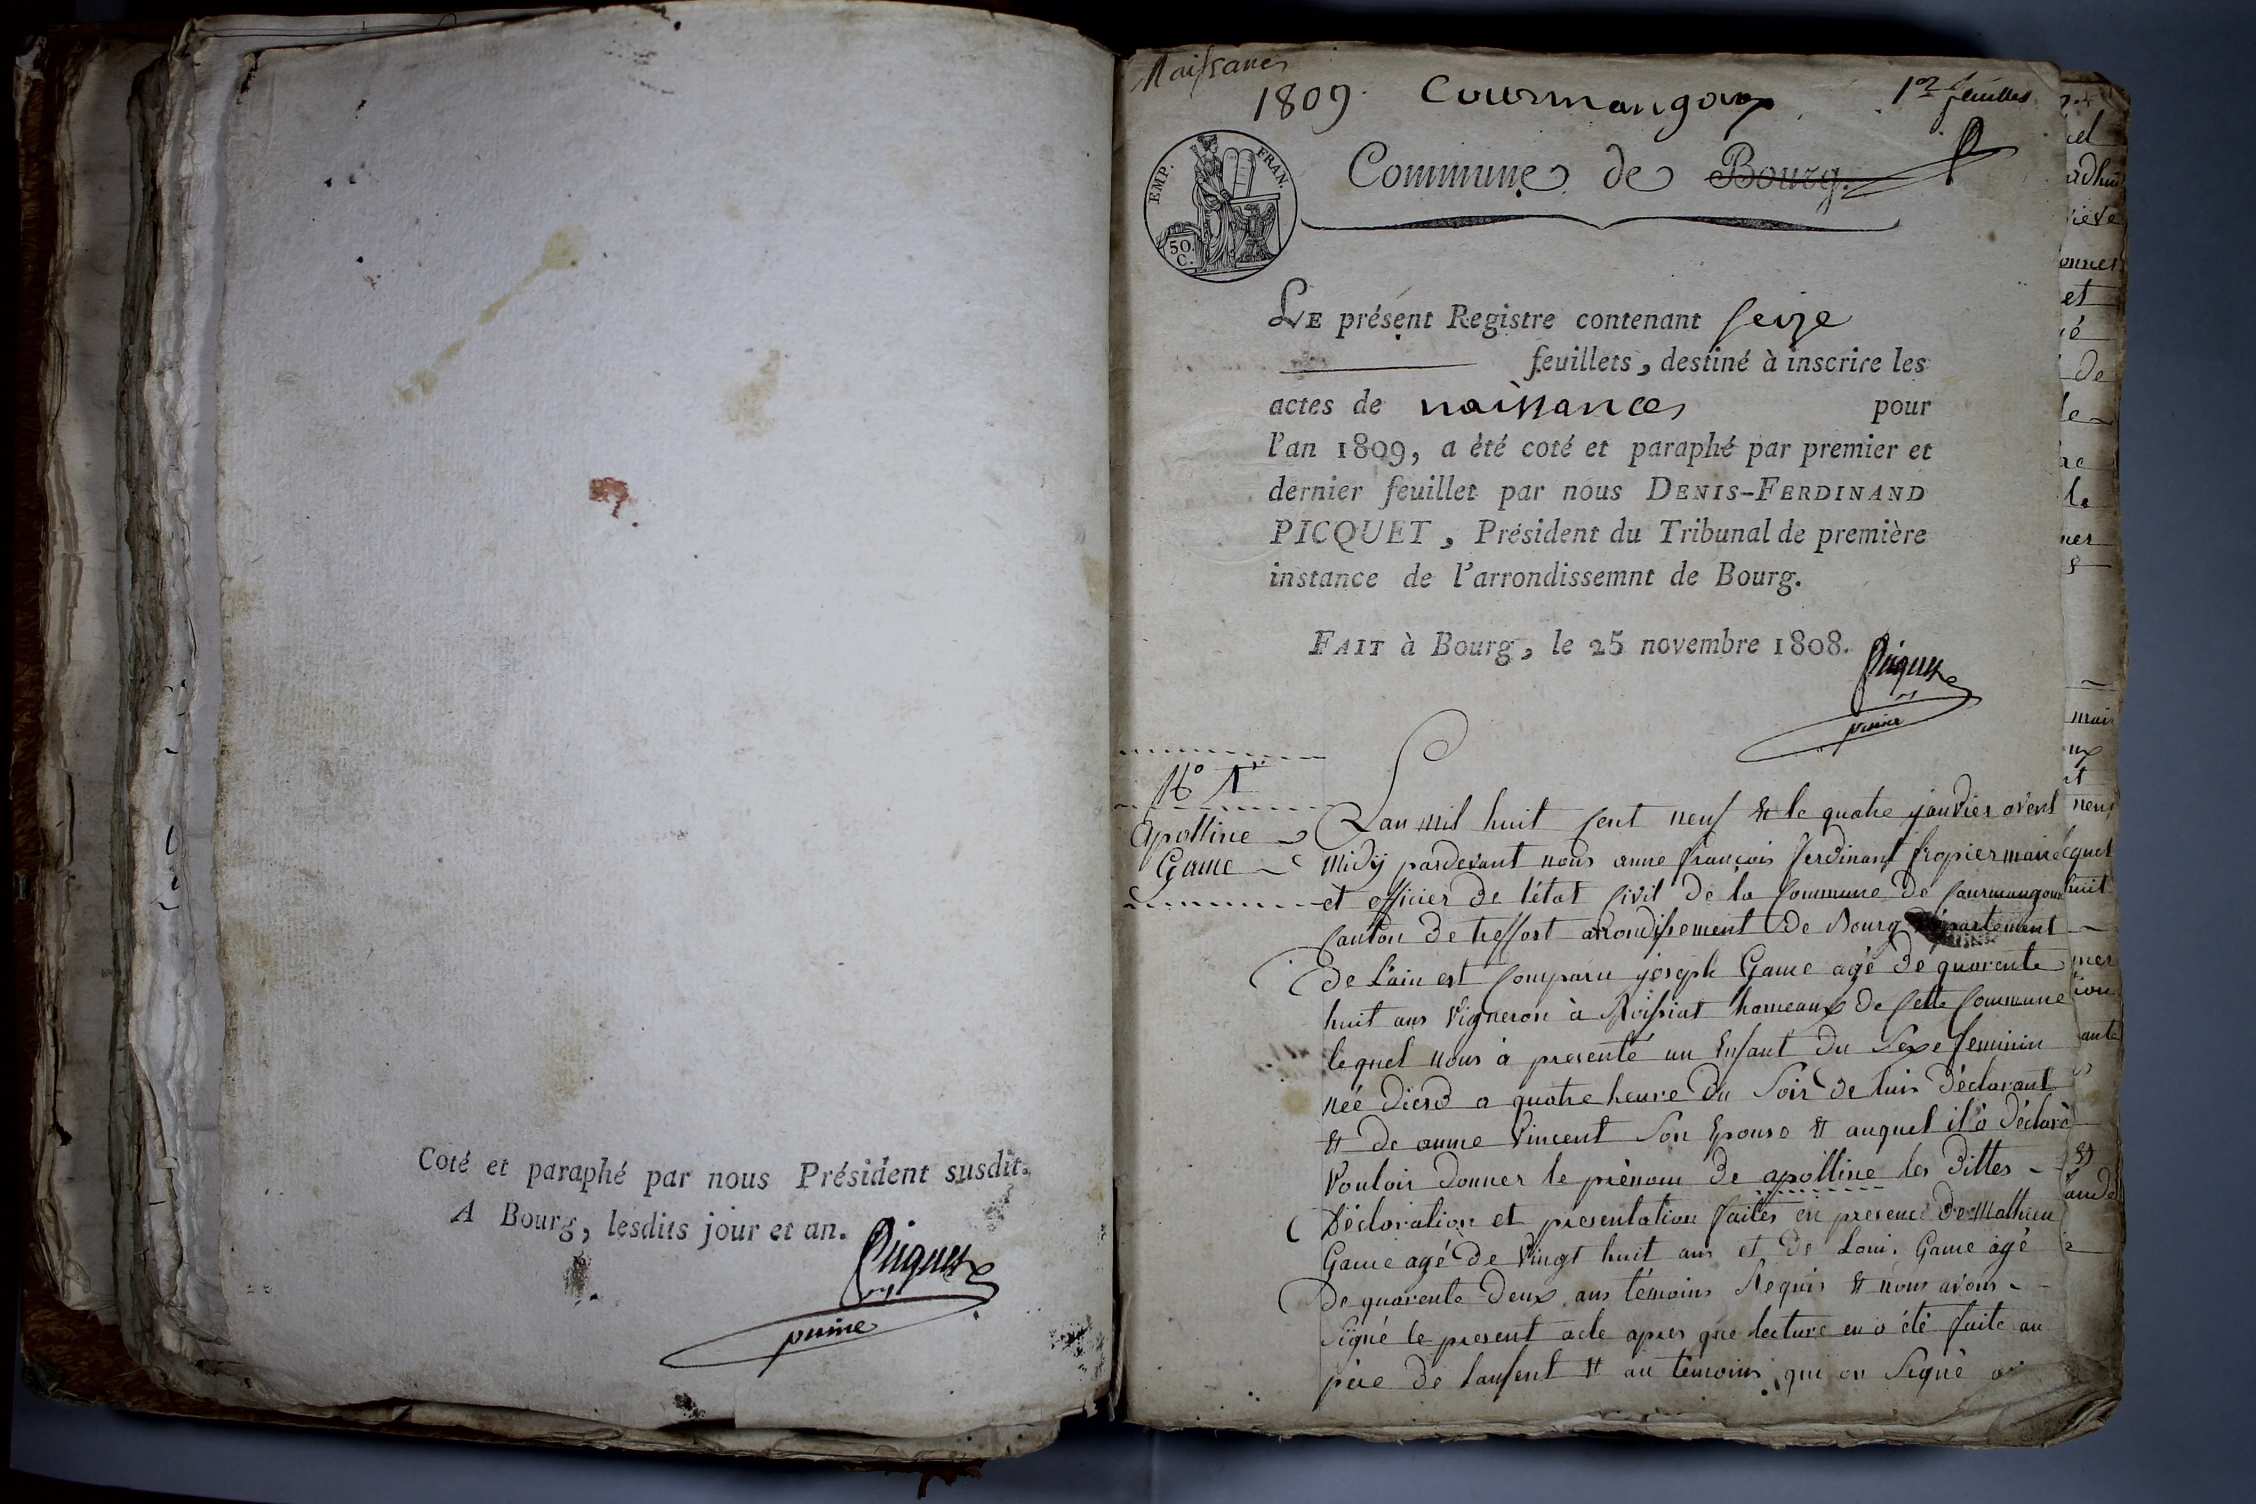 Coté et paraphé par nous Président susdit.
A Bourg, lesdits jour et an.
Picquet
Naissances
1809. Courmangoux
1er feuillet
EMP. FRAN.
50. C.
Commune de Bourg.
LE présent Registre contenant seize
feuillets, destiné à inscrire les
actes de naissances pour
l'an 1809, a été coté et paraphé par premier et
dernier feuillet par nous DENIS-FERDINAND
PICQUET, Président du Tribunal de première
instance de l'arrondissemnt de Bourg.
FAIT à Bourg, le 25 novembre 1808.
Picquet
No 1er
apolline
Game
Lan mil huit cent neuf & le quatre janvier avent
midÿ pardevant nous anne françois ferdinant fropier maire
et officier de létat civil de la commune de Courmangoux
canton de treffort arrondissement de Bourg département
de l'ain est comparu joseph Game agé de quarente
huit ans vigneron à Roissiat hameaux de cette commune
lequel nous à presenté un enfant du sexe feminin
née dierd a quatre heure du soir de luis déclarant
& de anne vincent son epouse & auquel il à déclaré
vouloir donner le prénom de apolline les dittes
déclaration et presentation faites en presence de Mathieu
Game agé de vingt huit ans et de Louis Game agé
de quarente deux ans témoins requis & nous avons
signé le present acte apres que lecture en a été faite au
père de lanfent & au témoins qui on signé